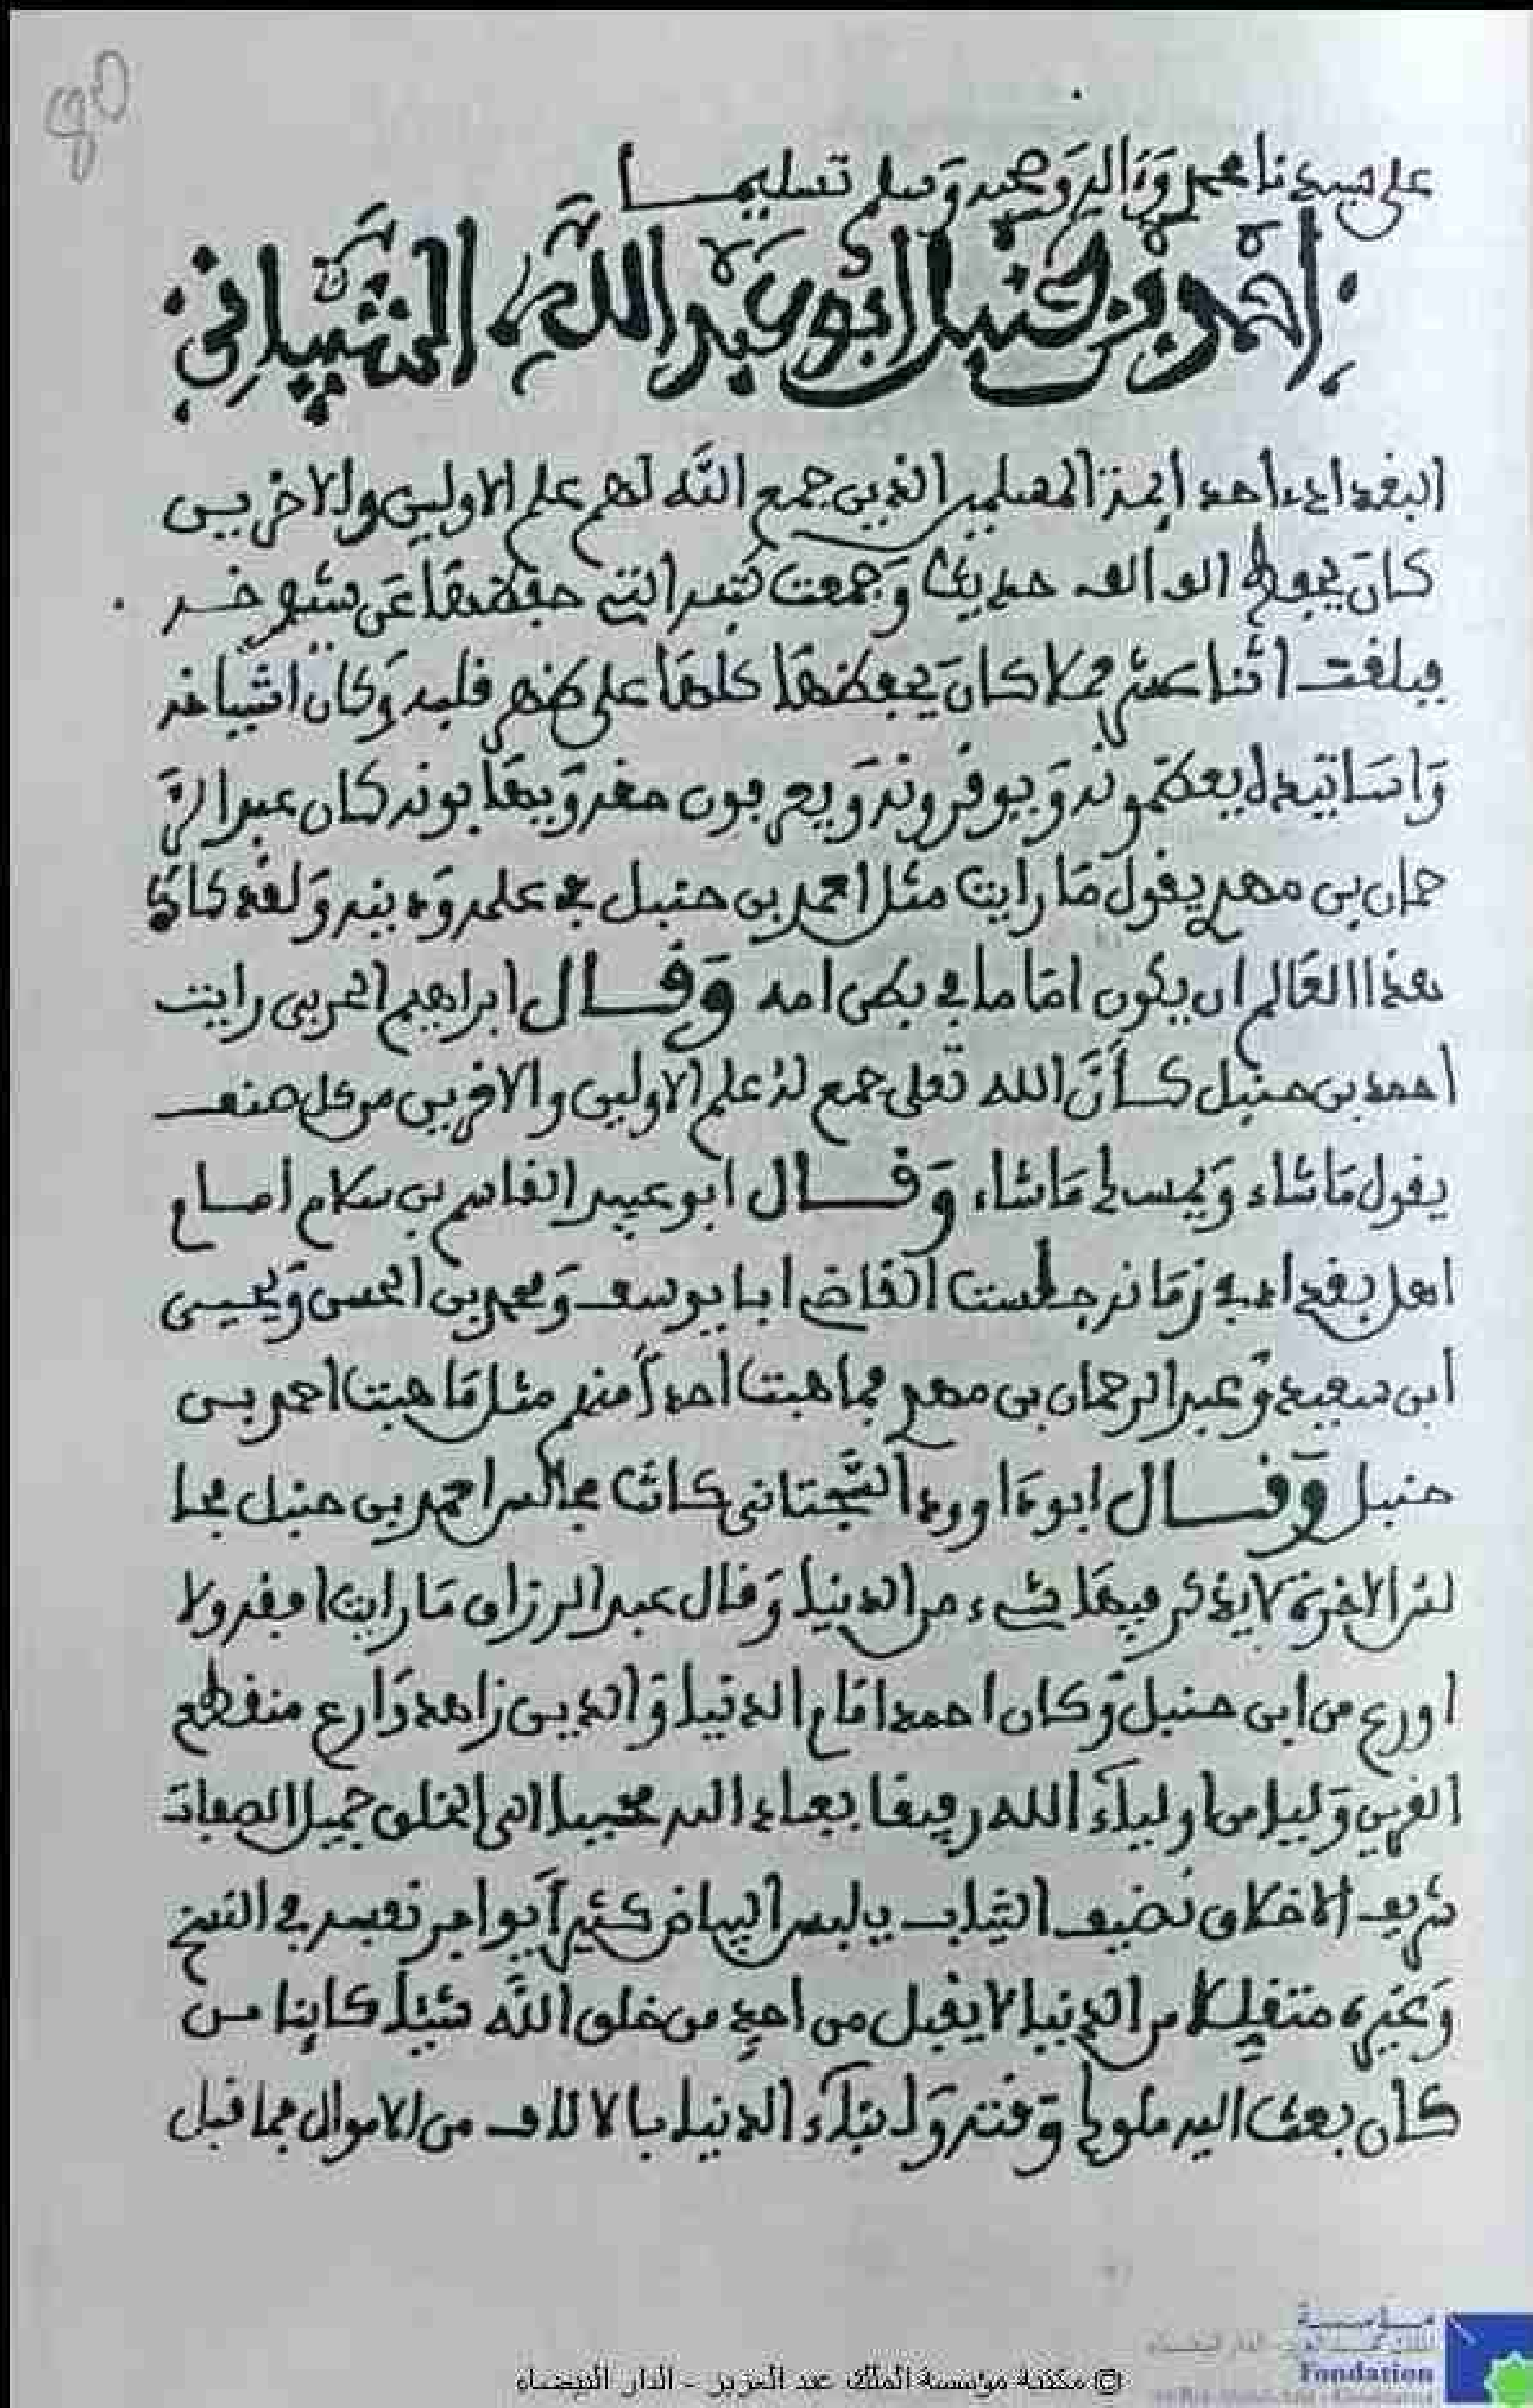 على سيدنا محمد وءاله وصحبه وسلم تسليما
احمد بن حنبل ابو عبد الله الشيباني
البغدادي احد ايمة المسلمين الذين جمع الله لهم علم الاولين والاخرين
كان يحفظ الف الف حديث وجمعت كتبه التي حفظها عن شيوخه
فبلغت اثنا عشر حملا كان يحفظها كلها على ظهر قلبه وكان اشياخه
واساتيده يعظمونه ويوقرونه ويعرفون حقه ويهابونه كان عبد الر
حمان بن مهدي يقول ما رايت مثل احمد بن حنبل في علمه ودينه ولقد كاد
هذا العالم ان يكون اماما في بطن امه وقال ابراهيم الحربي رايت
احمد بن حنبل كأنّ الله تعلى جمع له علم الاولين والاخرين من كل صنف
يقول ما شاء ويمسك ما شاء وقال ابو عبيد القاسم بن سلام امام
اهل بغداد في زمانه جلست القاضي ابا يوسف ومحمد بن الحسن ويحيى
ابن سعيد وعبد الرحمان بن مهدي فما هبت احدا منهم مثل ما هبت احمد بن
حنبل وقال ابو داوود السجتاني كانت مجالس احمد بن حنبل مجا
لس الاخرة لا يذكر فيها شيء من الدنيا وقال عبد الرزاق ما رايت افقه ولا
اورع من ابن حنبل وكان احمد امام الدنيا والدين زاهد وارع منقطع
القرين وليا من اولياء الله رفيقا بعباد الله محببا الى الخلق جميل الصفات
شريف الاخلاق نضيف الثياب يلبس البياض كثيرا يواجر نفسه في النسخ
وغيره متقللا من الدنيا لا يقبل من احد من خلق الله شيئا كاينا من
كان بعث اليه ملوك وقته ونبلاء الدنيا بالالاف من الاموال فما قبل
© مكتبة مؤسسة الملك عبد العزيز - الدار البيضاء
مؤسسة
Fondation